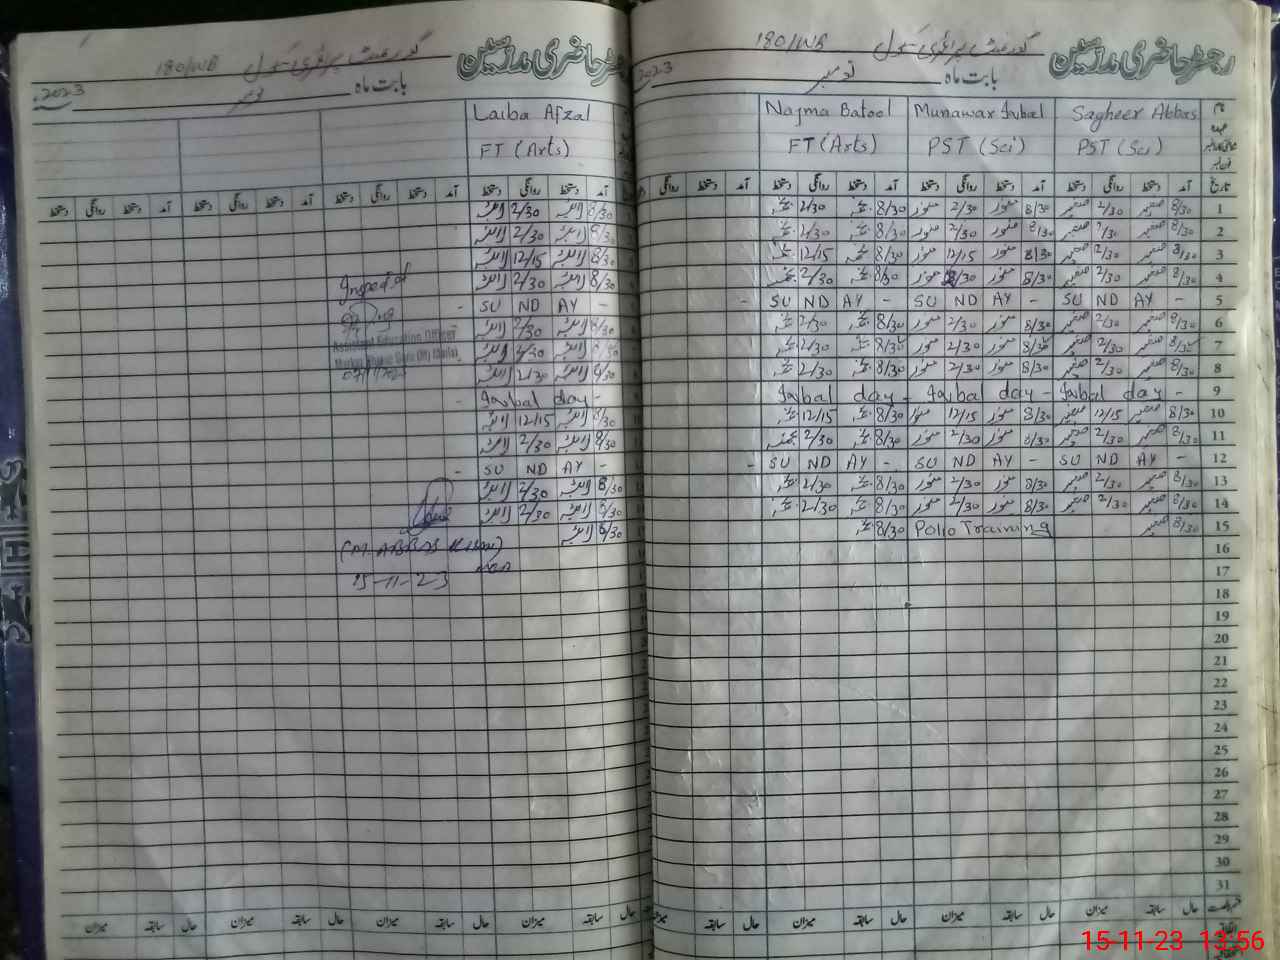 رجسٹر حاضری مدرسین گورنمنٹ پرائمری سکول 180/WB
بابت ماہ نومبر 2023
نام Sagheer Abbas Munawar Iqbal Najma Batool
عہدہ PST (Sci) PST (Sci) FT (Arts)
تاریخ آمد دستخط روانگی دستخط آمد دستخط روانگی دستخط آمد دستخط روانگی دستخط آمد دستخط روانگی
1 8/30 صغیر 2/30 صغیر 8/30 منور 2/30 منور 8/30 2/30
2 8/30 صغیر 2/30 صغیر 8/30 منور 2/30 منور 8/30 2/30
3 8/30 صغیر 12/15 صغیر 8/30 منور 12/15 منور 8/30 12/15
4 8/30 صغیر 2/30 صغیر 8/30 منور 2/30 منور 8/30 2/30
5 - SU ND AY - SU ND AY - SU ND AY -
6 8/30 صغیر 2/30 صغیر 8/30 منور 2/30 منور 8/30 2/30
7 8/30 صغیر 2/30 صغیر 8/30 منور 2/30 منور 8/30 2/30
8 8/30 صغیر 2/30 صغیر 8/30 منور 2/30 منور 8/30 2/30
9 Iqbal day - Iqbal day - Iqbal day -
10 8/30 صغیر 12/15 صغیر 8/30 منور 12/15 منور 8/30 12/15
11 8/30 صغیر 2/30 صغیر 8/30 منور 2/30 منور 8/30 2/30
12 - SU ND AY - SU ND AY - SU ND AY -
13 8/30 صغیر 2/30 صغیر 8/30 منور 2/30 منور 8/30 2/30
14 8/30 صغیر 2/30 صغیر 8/30 منور 2/30 منور 8/30 2/30
15 8/30 صغیر Polio Training 8/30
16
17
18
19
20
21
22
23
24
25
26
27
28
29
30
31
حال سابقہ میزان حال سابقہ میزان حال سابقہ میزان حال سابقہ میزان
رجسٹر حاضری مدرسین گورنمنٹ پرائمری سکول 180/WB
بابت ماہ نومبر 2023
Laiba Afzal
FT (Arts)
آمد دستخط روانگی دستخط آمد دستخط روانگی دستخط آمد دستخط روانگی دستخط آمد دستخط روانگی دستخط
8/30 لائبہ 2/30 لائبہ
8/30 لائبہ 2/30 لائبہ
8/30 لائبہ 12/15 لائبہ
8/30 لائبہ 2/30 لائبہ
- SU ND AY -
8/30 لائبہ 2/30 لائبہ
8/30 لائبہ 2/30 لائبہ
8/30 لائبہ 2/30 لائبہ
- Iqbal day -
8/30 لائبہ 12/15 لائبہ
8/30 لائبہ 2/30 لائبہ
- SU ND AY -
8/30 لائبہ 2/30 لائبہ
8/30 لائبہ 2/30 لائبہ
8/30 لائبہ
Inspected
Assistant Education Officer
(M. ABBAS
15-11-23
حال سابقہ میزان حال سابقہ میزان حال سابقہ میزان حال سابقہ میزان
15-11-23 13:56